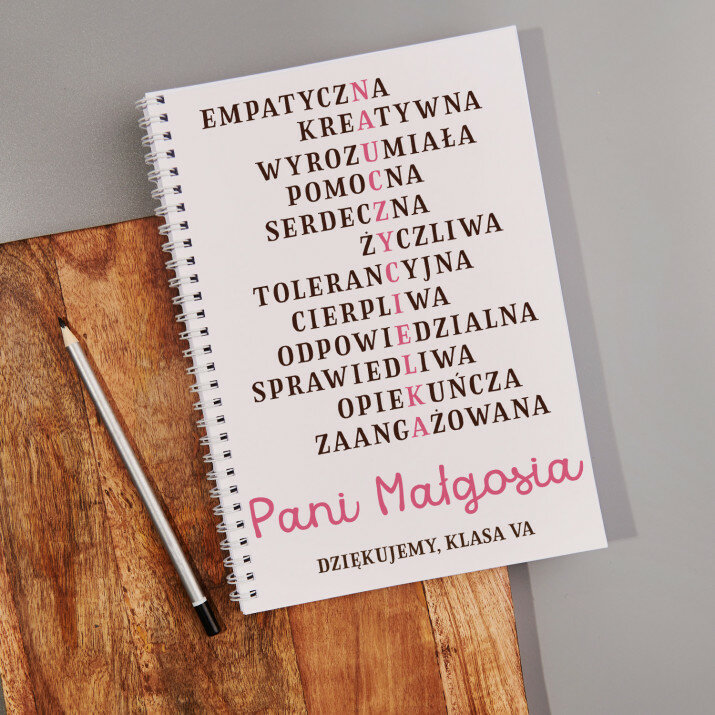 EMPATYCZNA
KREATYWNA
WYROZUMIAŁA
POMOCNA
SERDECZNA
ŻYCZLIWA
TOLERANCYJNA
CIERPLIWA
ODPOWIEDZIALNA
SPRAWIEDLIWA
OPIEKUŃCZA
ZAANGAŻOWANA
Pani Małgosia
DZIĘKUJEMY, KLASA VA